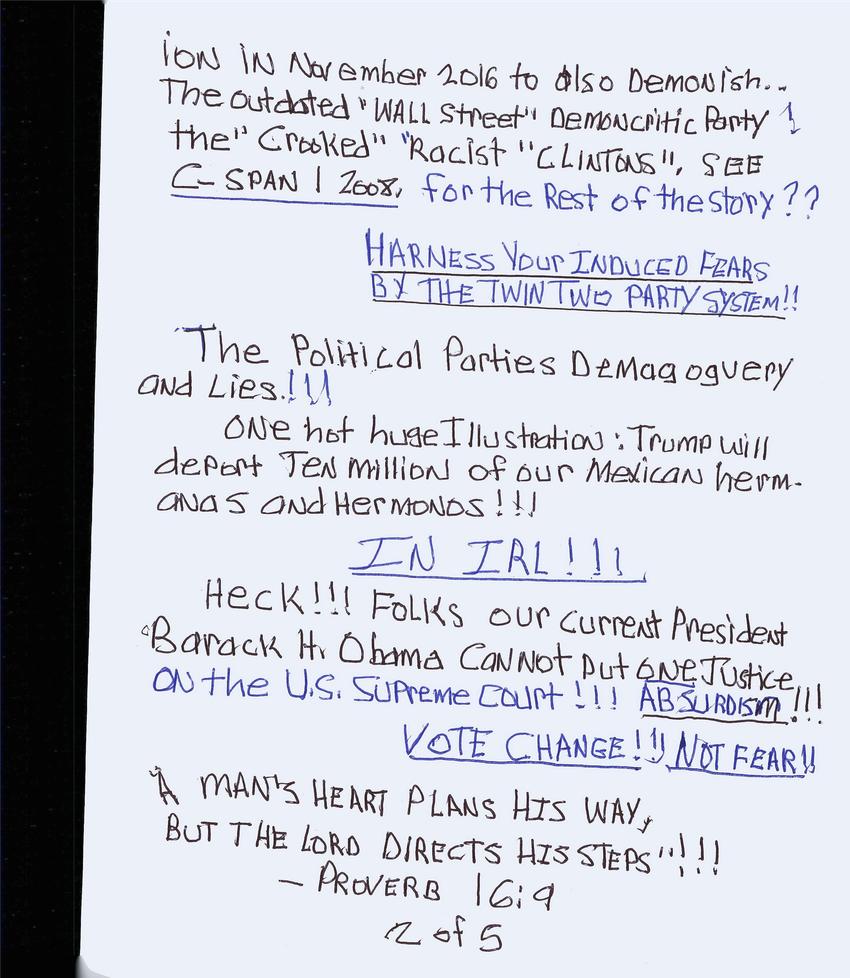 ION IN November 2016 to also Demonish..
The outdated "WALL Street" Demoncritic Party &
the "Crooked" "Racist "CLINTONS", SEE
C-SPAN 1 2008, for the Rest of the story??
HARNESS YOUR INDUCED FEARS
BY THE TWIN TWO PARTY SYSTEM!!
The Political Parties Demagoguery
and Lies.!!!
ONE hot huge Illustration: Trump will
deport TEN million of our Mexican herm-
anas and Hermonos!!!
IN IRL!!!
Heck!!! Folks our current President
"Barack H. Obama CANNOT put ONE Justice
ON the U.S. Supreme Court!!! ABSURDISM!!!
VOTE CHANGE!!! NOT FEAR!!
"A MAN'S HEART PLANS HIS WAY,
BUT THE LORD DIRECTS HIS STEPS"!!!
- PROVERB 16:9
2 of 5